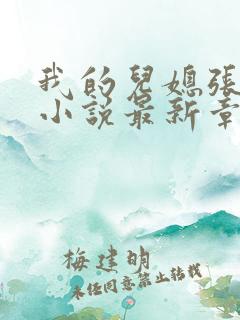 我的兒媳張
小說最新章
梅建明
未经同意禁止转载